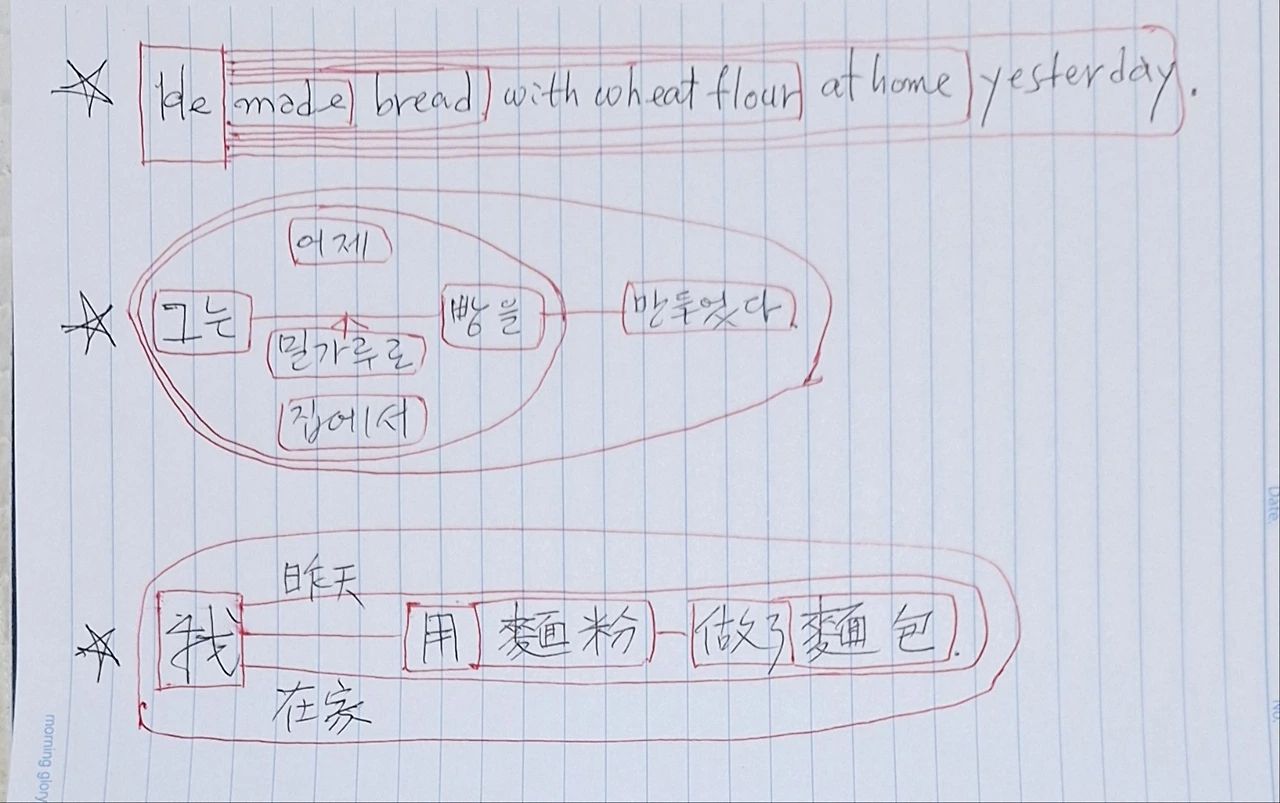 He made bread with wheat flour at home yesterday.
어제
그는 빵을 만들었다.
밀가루로
집에서
昨天
我 用 麵粉 做了 麵包.
在家
morning glory
Date.
No.